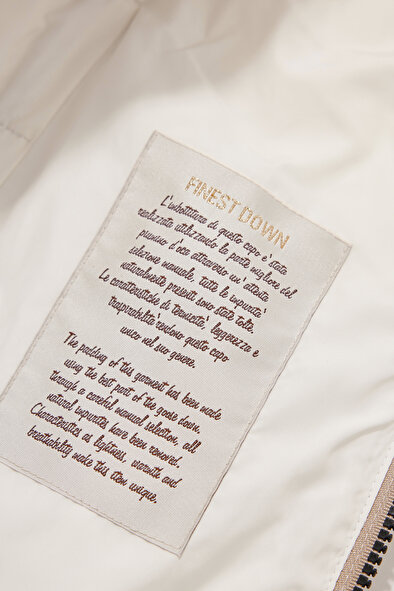 FINEST DOWN
L'imbottitura di questo capo e' stata
realizzata utilizzando la parte migliore del
piumino d'oca attraverso un'attenta
selezione manuale, tutte le impurita'
naturalmente presenti sono state tolte.
Le caratteristiche di tecnicita', leggerezza e
traspirabilita' rendono questo capo
unico nel suo genere.
The padding of this garment has been made
using the best part of the goose down,
through a careful manual selection, all
natural impurites have been removed.
Characteristics as lightness, warmth and
breathability make this item unique.